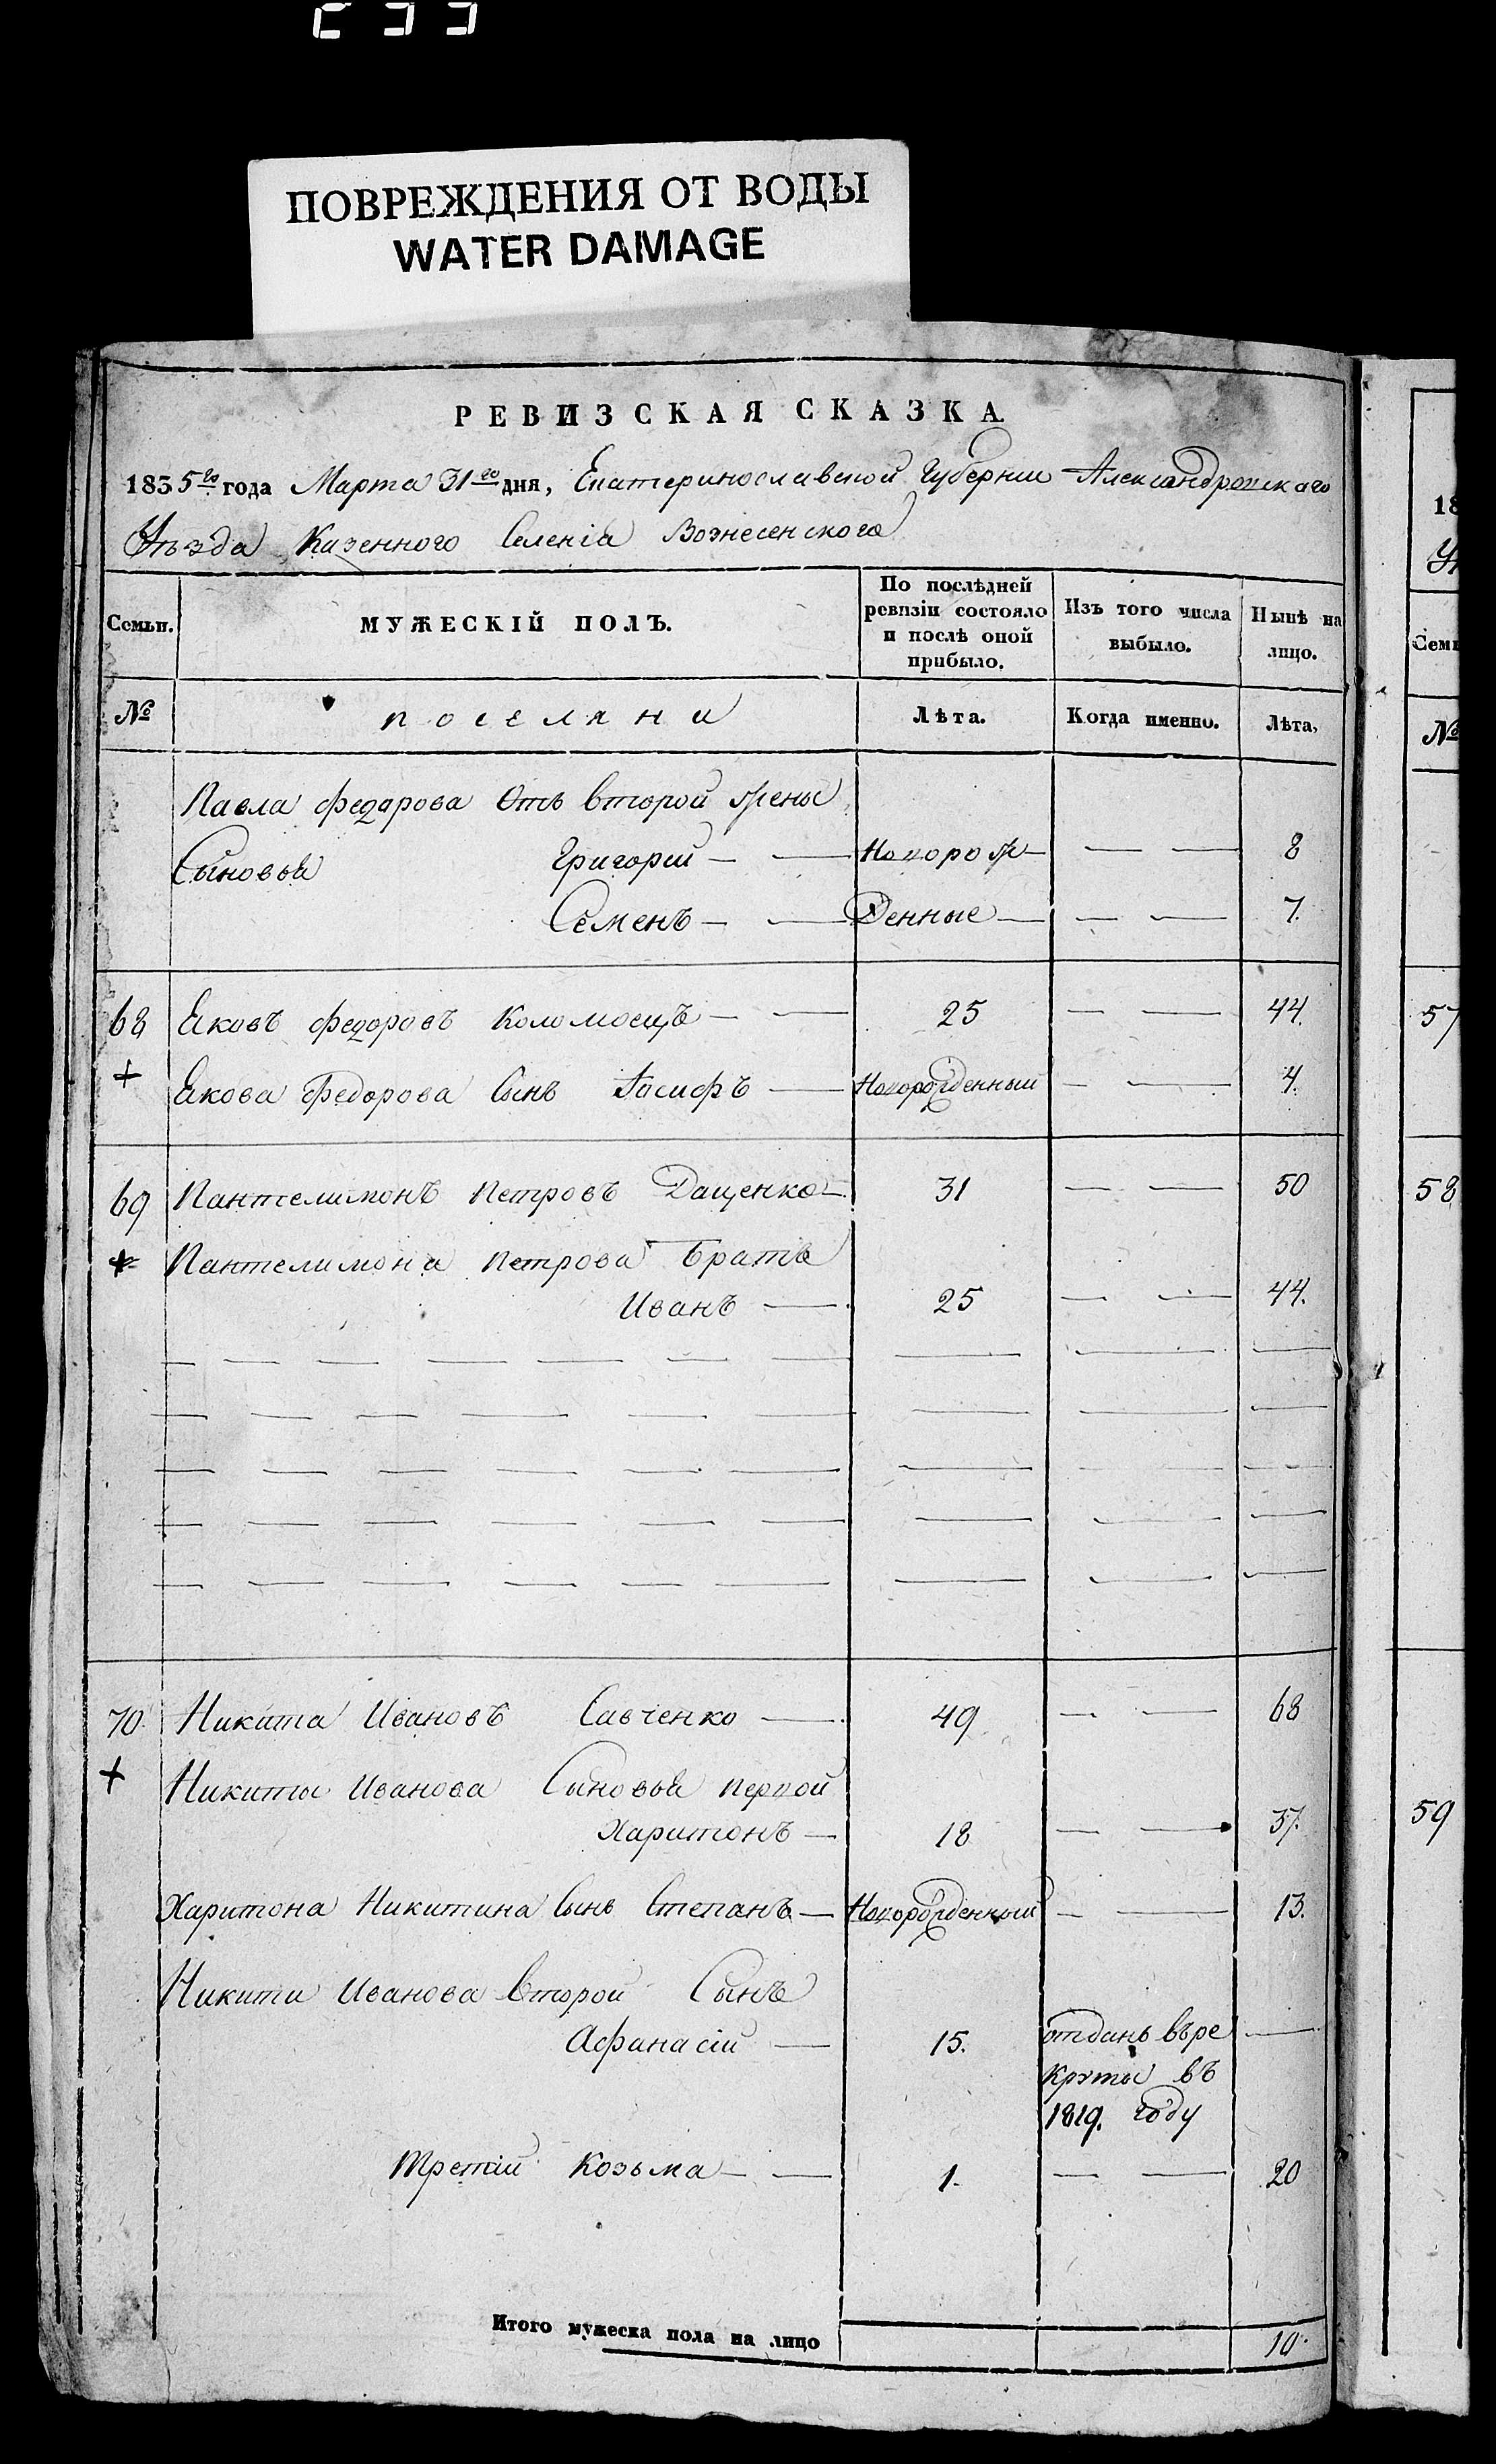 ПОВРЕЖДЕНИЯ ОТ ВОДЫ
WATER DAMAGE
РЕВИЗСКАЯ СКАЗКА
1835го года Марта 31го дня, Екатеринославской Губернии Александровскаго
Уѣзда Казенного Селенія Вознесенского
Семьи. МУЖЕСКІЙ ПОЛЪ. По послѣдней ревизіи состояло и послѣ оной прибыло. Изъ того числа выбыло. Нынѣ на лицо.
№ поселяни Лѣта. Когда именно. Лѣта,
Павла Федорова Отъ второй жены
Сыновья Григорей — — Новорож— — — 8
Семенъ — — Денные — — — 7.
68 Яковъ Федоровъ Коломоецъ — — 25 — — 44.
+ Якова Федорова Сынъ Іосифъ — Новорожденный — — 4.
69 Пантелимонъ Петровъ Даценко — 31 — — 50
Пантелимона Петрова Братъ
Иванъ — 25 — — 44.
70. Никита Ивановъ Савченко — 49 — — 68
+ Никиты Иванова Сыновья первой
Харитонъ — 18 — — 37.
Харитона Никитина Сынъ Степанъ — Новорожденный — — 13.
Никити Иванова второй Сынъ
Афанасій — 15. отданъ въре —
круты въ
1819. году
Третій Козьма — — 1. — — 20
Итого мужеска пола на лицо 10.
18
Семь
№
57
58
59